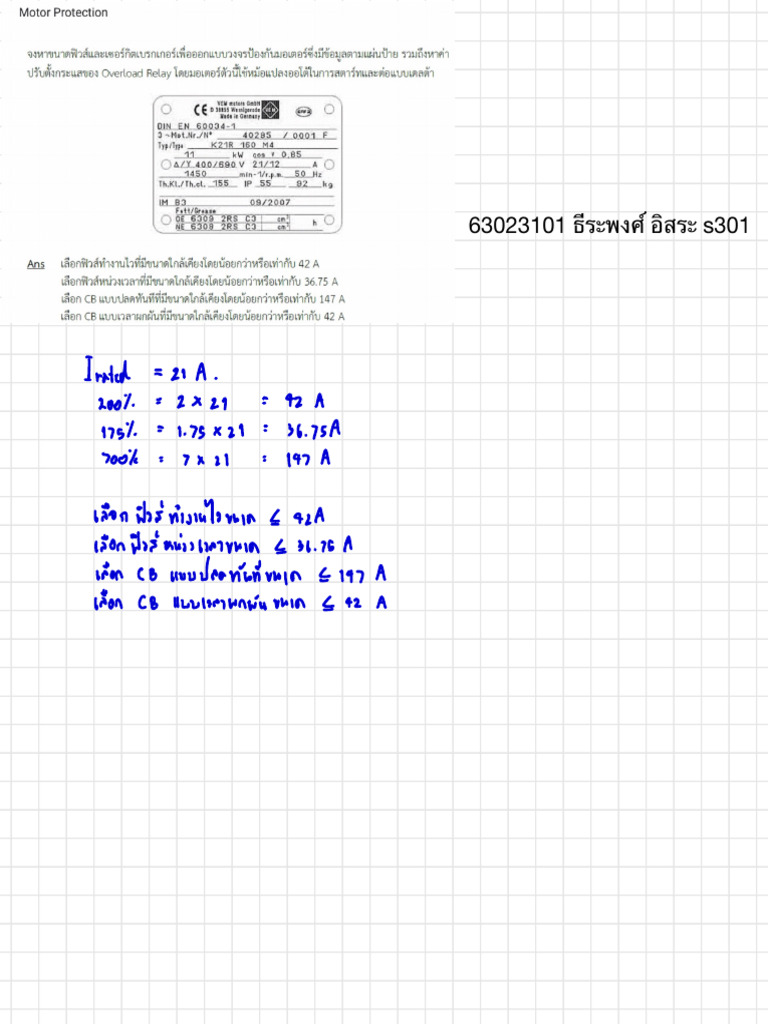 Motor Protection
จงหาขนาดฟิวส์และเซอร์กิตเบรกเกอร์เพื่อออกแบบวงจรป้องกันมอเตอร์ซึ่งมีข้อมูลตามแผ่นป้าย รวมถึงหาค่า
ปรับตั้งกระแสของ Overload Relay โดยมอเตอร์ตัวนี้ใช้หม้อแปลงออโต้ในการสตาร์ทและต่อแบบเดลต้า
CE VEM motors GmbH
D 38855 Wernigerode
Made in Germany
DIN EN 60034-1
3~Mot.Nr./N° 40285 / 0001 F
Typ/Type K21R 160 M4
11 kW cos φ 0,85
Δ/Y 400/690 V 21/12 A
1450 min-1/r.p.m. 50 Hz
Th.Kl./Th.cl. 155 IP 55 92 kg
IM B3 09/2007
Fett/Grease
DE 6309 2RS C3 cm³
NE 6309 2RS C3 cm³ h
63023101 ธีระพงศ์ อิสระ s301
Ans เลือกฟิวส์ทำงานไวที่มีขนาดใกล้เคียงโดยน้อยกว่าหรือเท่ากับ 42 A
เลือกฟิวส์หน่วงเวลาที่มีขนาดใกล้เคียงโดยน้อยกว่าหรือเท่ากับ 36.75 A
เลือก CB แบบปลดทันทีที่มีขนาดใกล้เคียงโดยน้อยกว่าหรือเท่ากับ 147 A
เลือก CB แบบเวลาผกผันที่มีขนาดใกล้เคียงโดยน้อยกว่าหรือเท่ากับ 42 A
I rated = 21 A.
200% = 2 × 21 = 42 A
175% = 1.75 × 21 = 36.75A
700% = 7 × 21 = 147 A
เลือก ฟิวส์ ทำงานไวขนาด ≤ 42A
เลือก ฟิวส์ หน่วงเวลาขนาด ≤ 36.75 A
เลือก CB แบบปลดทันทีขนาด ≤ 147 A
เลือก CB แบบเวลาผกผัน ขนาด ≤ 42 A